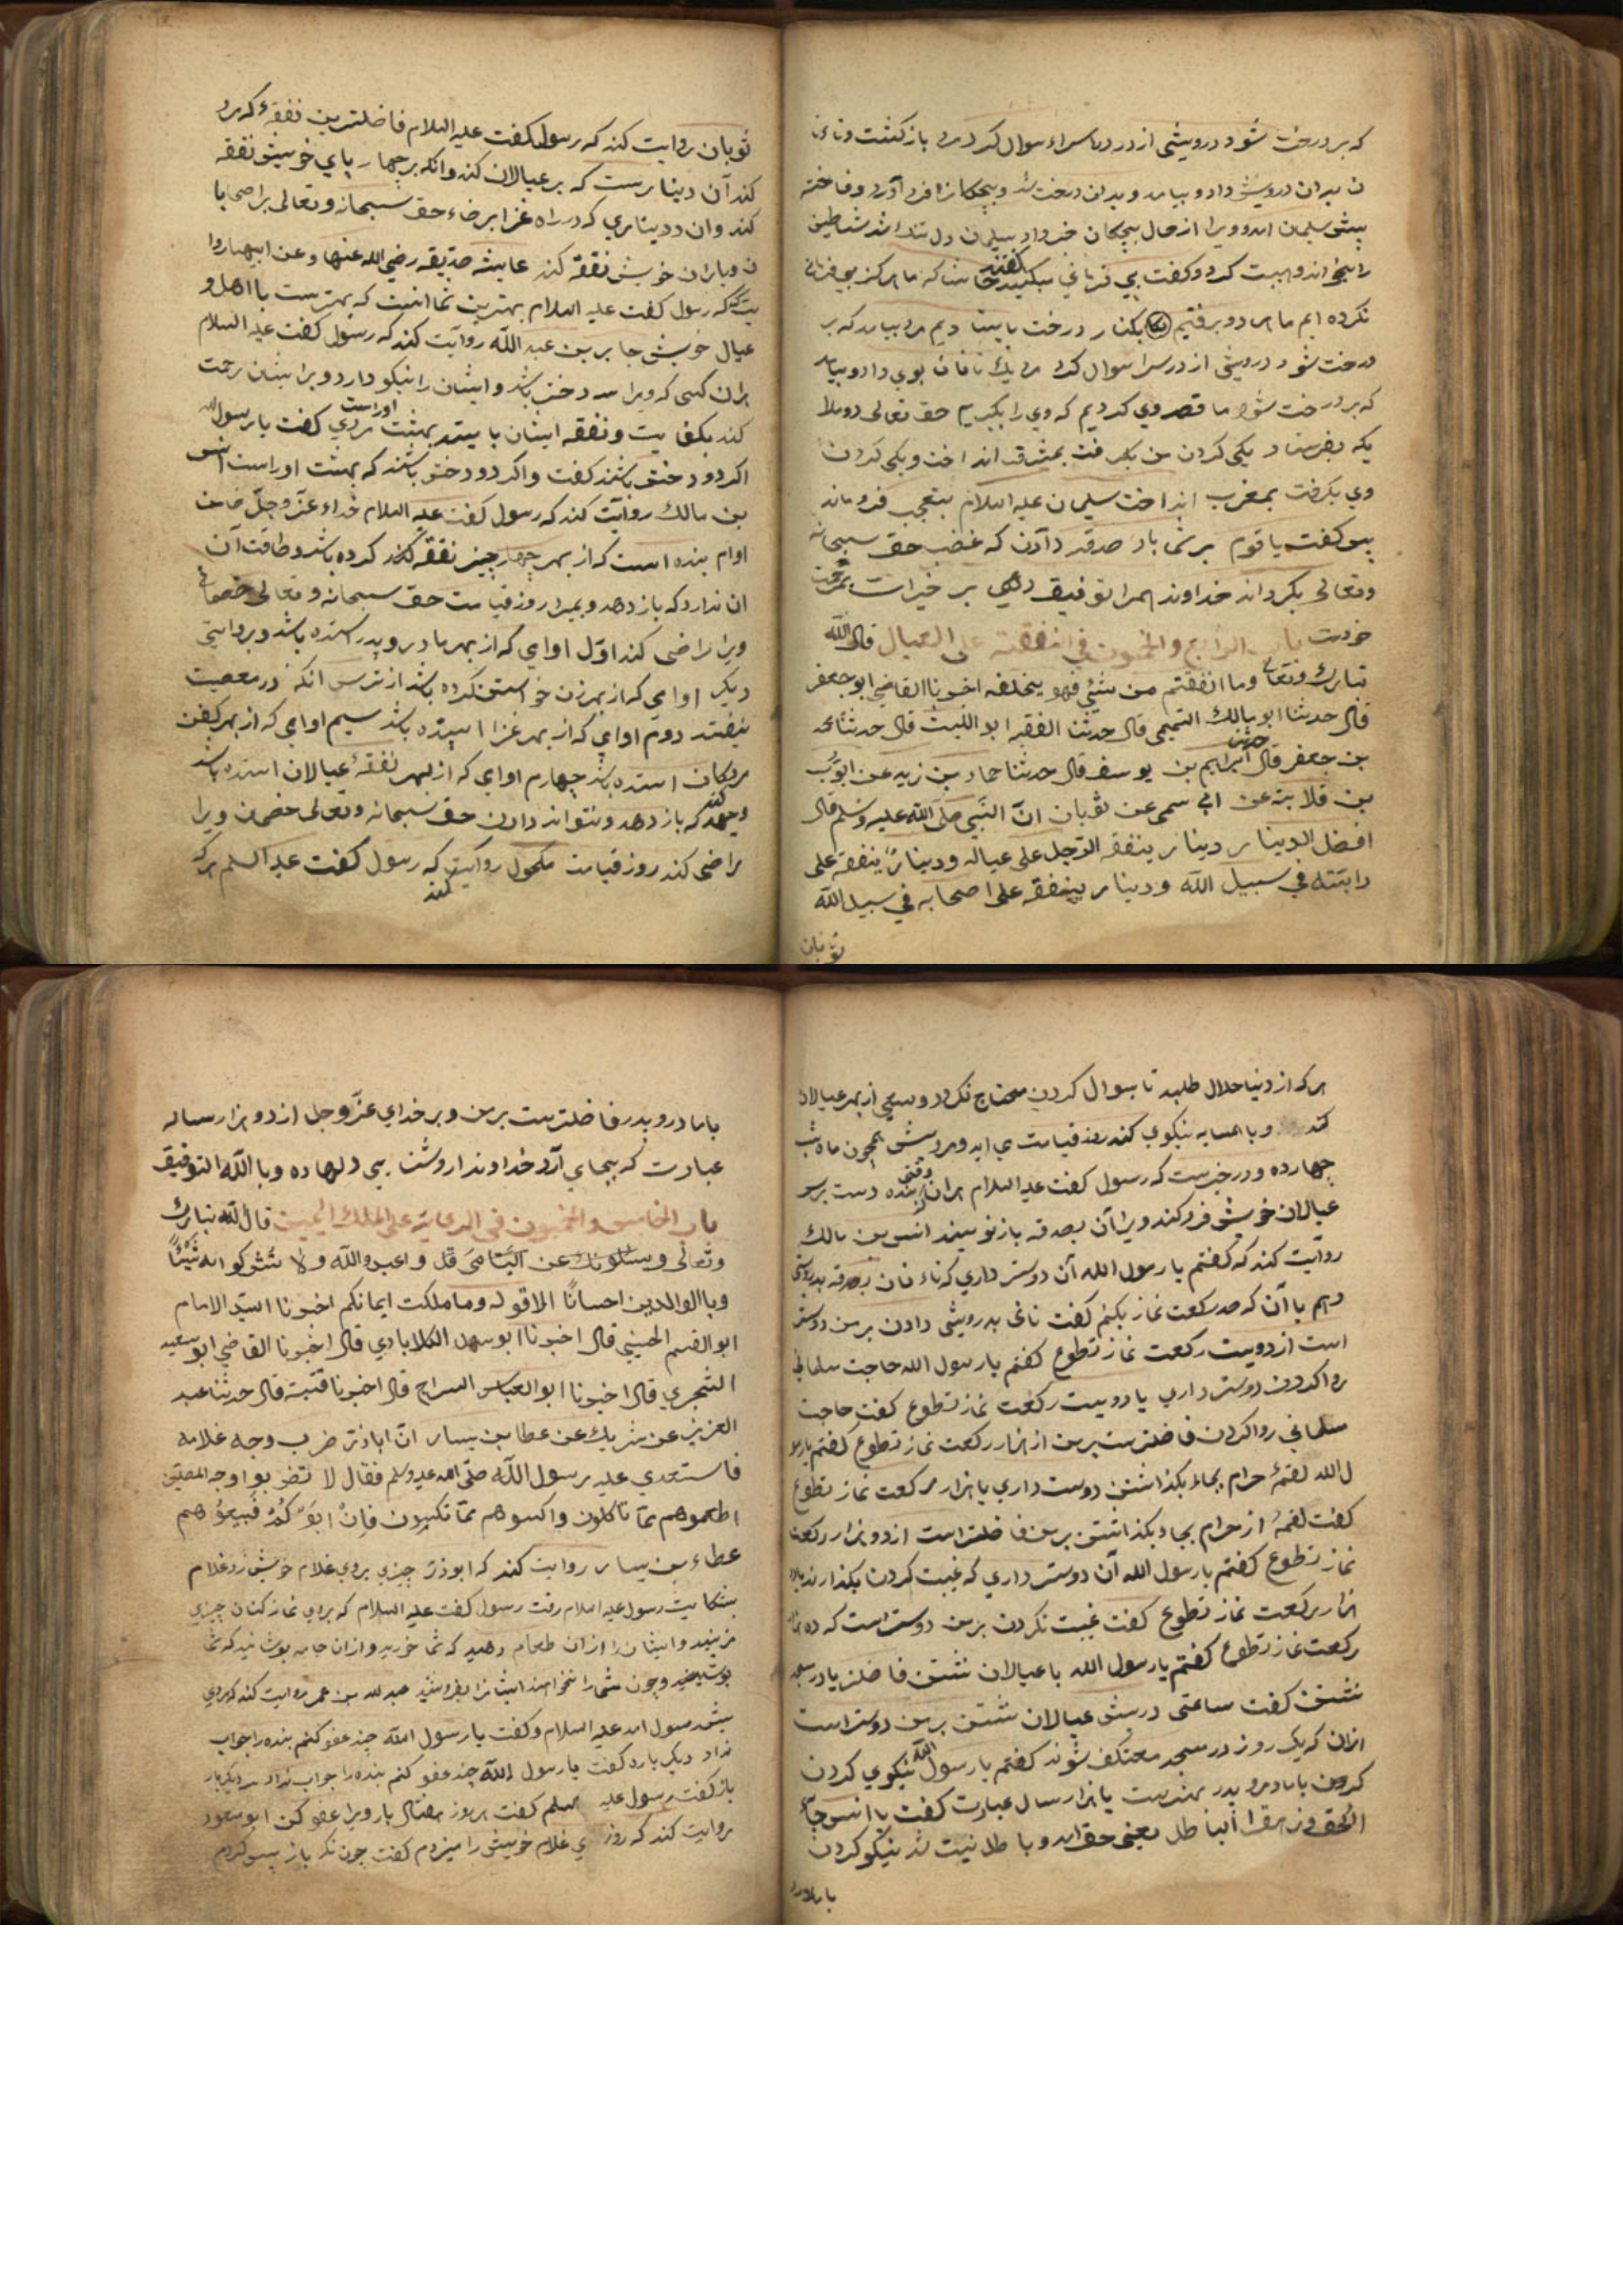 که بر درخت شود درویشی از در در سراء سوال کرد مرد باز کشت و نانی
ن بدان درویش داد و بیامد و بدان درخت شد و بچکانرا فرد آورد و فاخته
پیش سلیمن امد و ویرا از حال بچکان خبر داد سلیمن دل تنک شد شیاطین
را بخواند و هیبت کرد و کفت بی فرمانی میکنید کفتند حاشا که ما هرکز بی فرمانی
نکرده ایم ما هر دو برفتیم بکنار درخت بایستادیم مرد بیامد که بر
درخت شود درویشی از در سرا سوال کرد مرد یک تا نان بوی داد و بیامد
که بر درخت شود ما قصد وی کردیم که وی را بکیریم حق تعالی دو ملا
یکه بفرستاد یکی کردن من بکرفت بمشرق انداخت و یکی کردن
وی بکرفت بمغرب انداخت سلیمان علیه السلام بتعجب فرو ماند
پس کفت یا قوم بر شما باد صدقه دادن که غضب حق سبحانه
وتعالی بکرداند خداوند همرا توفیق دهی بر خیرات بمرحمت
خودت باب الرابع والخمسون فی النفقة علی العیال قال الله
تبارک وتعالی وما انفقتم من شیٔ فهو یخلفه اخبرنا القاضی ابو جعفر
قال حدثنا ابو مالک التمیمی قال حدثنا الفقیه ابو اللیث قال حدثنا محمد
بن جعفر قال حدثنا ابراهیم بن یوسف قال حدثنا حماد بن زید عن ایوب
بن قلابة عن ابی سمی عن ثوبان انّ النبی صلی الله علیه وسلم قال
افضل الدینار دینار ینفقه الرّجل علی عیاله ودینارٌ ینفقه علی
دابّته فی سبیل الله ودینار ینفقه علی اصحابه فی سبیل الله
ثوبان
ثوبان روایت کند که رسول کفت علیه السلام فاضلترین نفقهٔ که مرد
کند آن دینارست که بر عیالان کند وانکه بر چهار پای خویش نفقه
کند وان دیناری که در راه غزا برضاء حق سبحانه و تعالی بر اصحابا
ن ویاران خویش نفقه کند عایشه صدیقه رضی الله عنها وعن ابیها روا
یت کند که رسول کفت علیه السلام بهترین شما انست که بهترست با اهل و
عیال خویش جابر بن عبد الله روایت کند که رسول کفت علیه السلام
هران کسی که ویرا سه دختر باشد و ایشان را نیکو دارد و بر ایشان رحمت
کند بکفایت و نفقه ایشان بایستد بهشت اوراست مردی کفت یا رسول الله
اکر دو دختر باشند کفت واکر دو دختر باشند که بهشت اوراست انس
بن مالک روایت کند که رسول کفت علیه السلام خداء عزّ وجلّ ضامن
اوام بنده است که از بهر چهار چیز نفقه کند کرده باشد و طاقت آن
ان ندارد که باز دهد و بمیرد روز قیامت حق سبحانه و تعالی خصمان
ویرا راضی کند اوّل اوامی که از بهر مادر و پدر استده باشد و بروایتی
دیکر اوامی که از بهر زن خواستن کرده باشد از ترس انکه در معصیت
نیفتد دوم اوامی که از بهر غزا استده باشد سیم اوامی که از بهر کفن
مردکان استده باشد چهارم اوامی که از بهر نفقهٔ عیالان استده باشد
وجهد کند که باز دهد ونتواند دادن حق سبحانه وتعالی خصمان ویرا
راضی کند روز قیامت مکحول روایت کند که رسول کفت علیه السلم هرکه
هرکه از دنیا حلال طلبد تا بسوال کردن محتاج نکردد و سعی از بهر عیالان
کند وبا همسایه نیکوی کند روز قیامت می اید و رویش همچون ماه شب
چهارده و در خبرست که رسول کفت علیه السلام هران وقتی که بنده دست بر سر
عیالان خویش فرود کند ویرا آن بصدقه باز نویسند انس بن مالک
روایت کند که کفتم یا رسول الله آن دوستر داری که تاء نان بصدقه بدرویشی
دهم یا آن که صد رکعت نماز بکنم کفت نانی بدرویشی دادن بر من دوستر
است از دویست رکعت نماز تطوع کفتم یا رسول الله حاجت مسلمانی
روا کردن دوستر داری یا دویست رکعت نماز تطوع کفت حاجت
مسلمانی روا کردن فاضلترست بر من از هزار رکعت نماز تطوع کفتم یا رسو
ل الله لقمهٔ حرام بجاء بکذاشتن دوست داری یا هزار رکعت نماز تطوع
کفت لقمهٔ از حرام بجاء بکذاشتن بر من فاضلتر است از دو هزار رکعت
نماز تطوع کفتم یا رسول الله آن دوستر داری که غیبت کردن بکذارند یا ده
هزار رکعت نماز تطوع کفت غیبت نکردن بر من دوستراست که ده هزار
رکعت نماز تطوع کفتم یا رسول الله با عیالان نشستن فاضلتر یا در مسجد
نشستن کفت ساعتی در پیش عیالان نشستن بر من دوستراست
ازان که یک روز در مسجد معتکف شوند کفتم یا رسول الله نیکوی کردن
کردن با مادر و پدر بهترست یا هزار سال عبادت کفت یا انس جآء
الحق وزهق الباطل یعنی حق امد و باطل نیست شد نیکو کردن
با مادر
با مادر و پدر فاضلترست بر من و بر خدای عزّ وجل از دو هزار ساله
عبادت که بجای آرد خداوند اروشنایی دلها ده وبالله التوفیق
باب الخامس والخمسون فی الرعایة علی الملک الیمین قال الله تبارک
وتعالی ویسئلونک عن الیتامی قل واعبدوالله ولا تشرکوا به شیئاً
وبالوالدین احسانًا الا قوله وما ملکت ایمانکم اخبرنا السیّد الامام
ابو القسم الحسینی قال اخبرنا ابو سهل الکلابادی قال اخبرنا القاضی ابو سعید
الشجری قال اخبرنا ابو العباس السراج قال اخبرنا قتیبة قال حدثنا عبد
العزیز عن شریک عن عطا بن یسار انّ اباذر ضرب وجه غلامه
فاستعدی علیه رسول الله صلی الله علیه وسلم فقال لا تضربوا وجه المصلین
اطعموهم ممّا تأکلون واکسوهم ممّا تکسون فاِنْ ابَوْکُمْ فَبیعُوهم
عطاء بن یسار روایت کند که ابوذر چیزی بروی غلام خویش زد غلام
بشکایت رسول علیه السلام رفت رسول کفت علیه السلام که بروی نماز کنان چیزی
مزنید و ایشان را ازان طعام دهید که شما خورید وازان جامه پوشانید که شما
پوشید وچون شما را نخواهند ایشانرا بفروشید عبد لله بن عمر روایت کند که مردی
پیش رسول امد علیه السلام وکفت یا رسول الله چند عفو کنم بنده را جواب
نداد دیکر باره کفت یا رسول الله چند عفو کنم بنده را جواب نداد سدیکر بار
باز کفت رسول علیه السلم کفت هر روز هفتاد بار ویرا عفو کن ابو مسعود
روایت کند که روزی غلام خویش را میزدم کفت چون نکر باز پس کردم